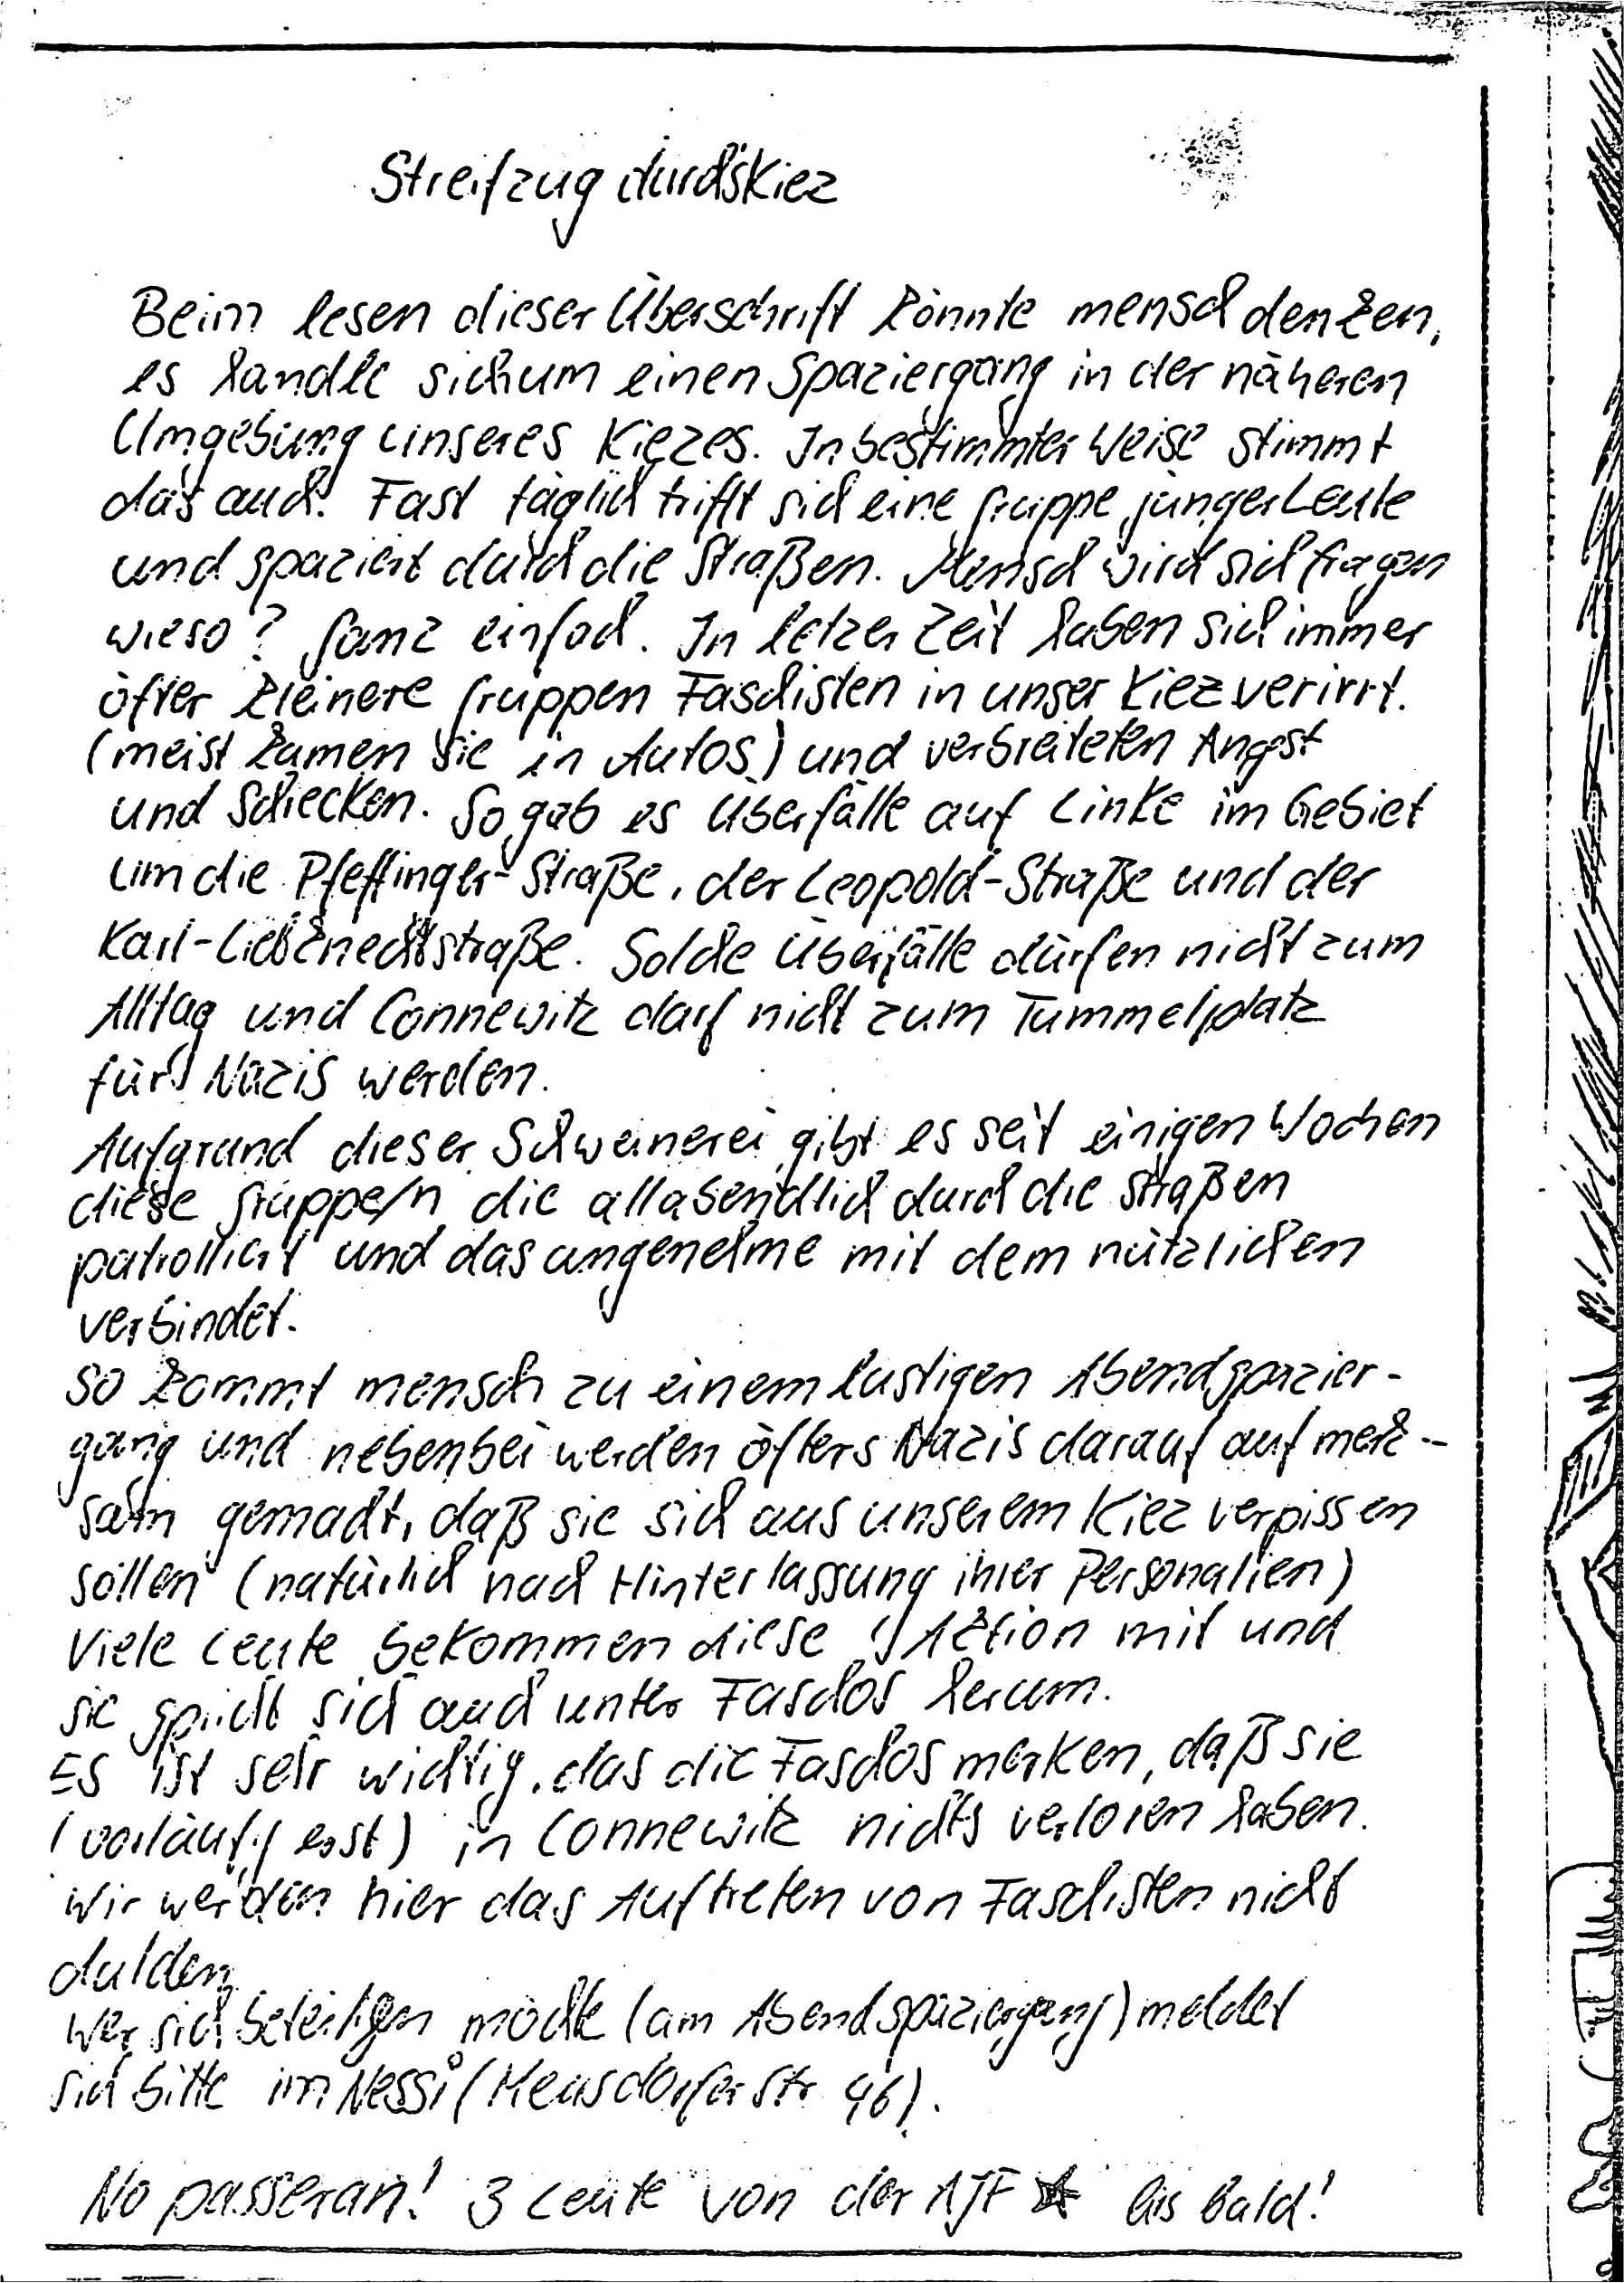 Streifzug durch's Kiez
Beim lesen dieser Überschrift könnte mensch denken,
es handle sich um einen Spaziergang in der näheren
Umgebung unseres Kiezes. In bestimmter Weise stimmt
das auch. Fast täglich trifft sich eine Gruppe junger Leute
und spaziert durch die Straßen. Mensch wird sich fragen
wieso? Ganz einfach. In letzer Zeit haben sich immer
öfter kleinere Gruppen Faschisten in unser Kiez verirrt.
(meist kamen sie in Autos) und verbreiteten Angst
und Schrecken. So gab es Überfälle auf Linke im Gebiet
um die Pfeffinger-Straße, der Leopold-Straße und der
Karl-Liebknechtstraße. Solche Überfälle dürfen nicht zum
Alltag und Connewitz darf nicht zum Tummelplatz
für Nazis werden.
Aufgrund dieser Schweinerei gibt es seit einigen Wochen
diese Gruppe/n die allabendlich durch die Straßen
patrolliert und das angenehme mit dem nützlichen
verbindet.
So kommt mensch zu einem lustigen Abendspazier-
gang und nebenbei werden öfters Nazis darauf aufmerk-
sam gemacht, daß sie sich aus unserem Kiez verpissen
sollen (natürlich nach Hinterlassung ihrer Personalien)
Viele Leute bekommen diese Aktion mit und
sie spricht sich auch unter Faschos herum.
Es ist sehr wichtig, das die Faschos merken, daß sie
(vorläufig erst) in Connewitz nichts verloren haben.
Wir werden hier das Auftreten von Faschisten nicht
dulden.
Wer sich beteiligen möchte (am Abendspaziergang) meldet
sich bitte im Nessi (Meusdorfer Str 46).
No passeran! 3 Leute von der AJF bis bald!